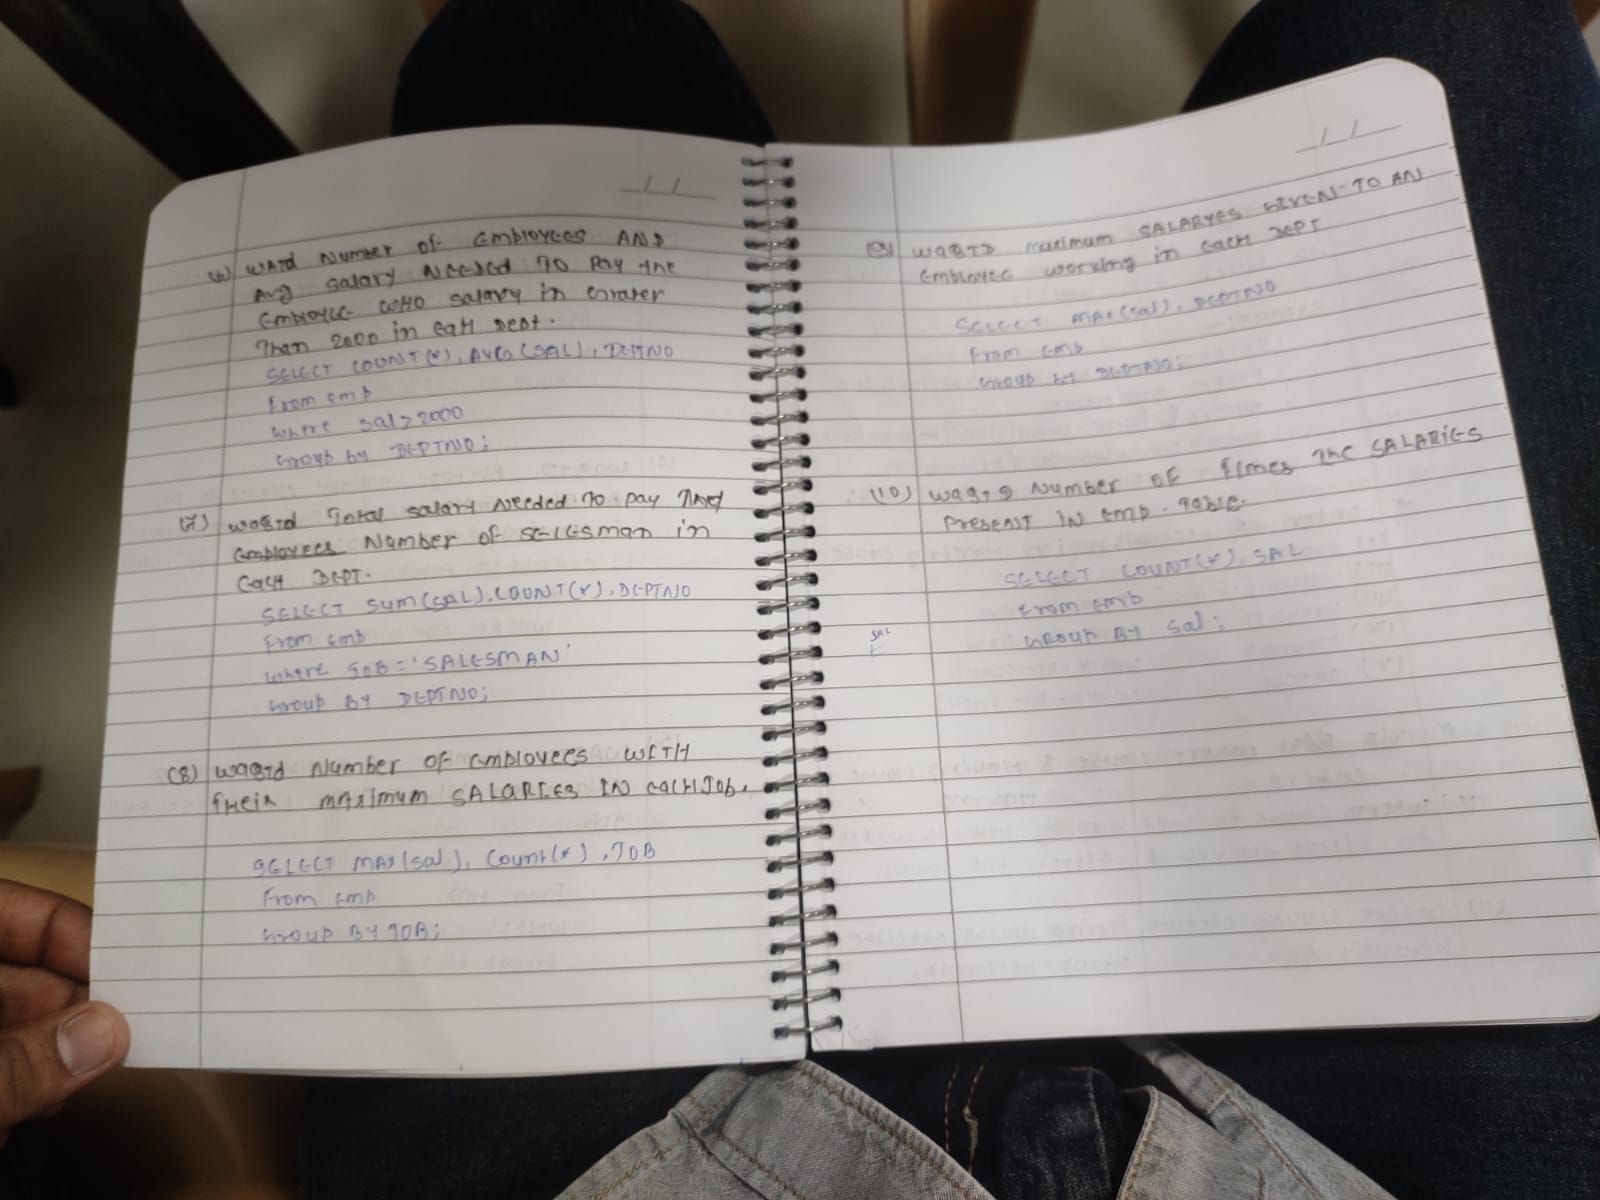 (6) WAtd Number of Employees AND
Avg salary Needed To Pay the
Employee WHO salary in Grater
Than 2000 in EaH Dept.
SELECT COUNT(*), AVG(SAL), DEPTNO
From emp
Where sal>2000
Group by DEPTNO;
(7) WAQtd Total salary Needed To pay
Employees Number of SElesman in
EacH DEPT.
SELECT Sum(SAL), COUNT(*), DEPTNO
From Emp
Where JOB='SALESMAN'
Group By DEPTNO;
(8) WAQtd Number of Employees WITH
THeir MAximum SALARIES IN eacHJob.
SELECT MAx(sal), Count(*), JOB
From Emp
Group BY JOB;
_/_/_
_/_/_
(9) WAQTD maximum SALARYES GIVEN TO AN
Employee working in EacH DEPT
SELECT MAx(sal), DEPTNO
From emp
Group by DEPTNO;
(10) WAQTD Number OF times THE SALARIES
PresenT IN Emp. Table.
SELECT COUNT(*), SAL
From Emp
GROUP BY Sal;
SAL